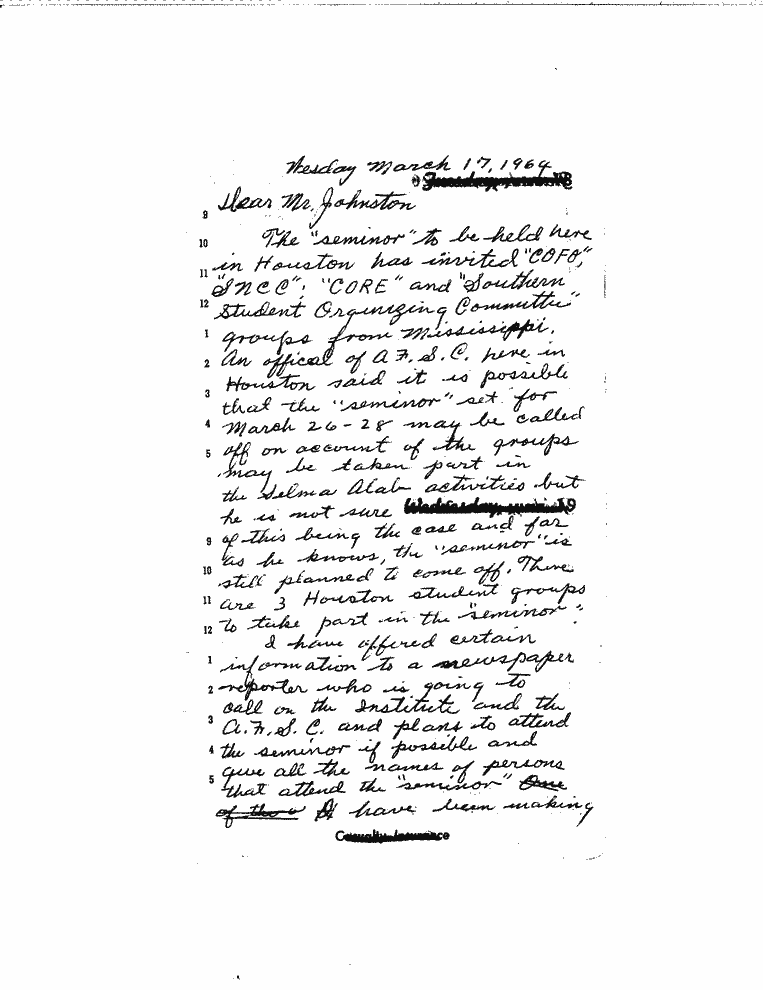 Wesday March 17, 1964
Dear Mr. Johnston
9
10 The "seminor" to be held here
11 in Houston has invited "COFO",
"SNCC", "CORE" and "Southern
12 Student Orgunizing Committu"
1 groups from Mississippi.
2 An offical of A.F.S.C. here in
Houston said it is possible
3 that the "seminor" set for
4 March 26-28 may be called
5 off on account of the groups
may be taken part in
the Selma Alab activities but
he is not sure
9 of this being the case and far
as he knows, the "seminor" is
10 still planned to come off. There
11 are 3 Houston student groups
12 to take part in the "seminor".
I have offered certain
1 information to a newspaper
2 reporter who is going to
call on the Institute and the
3 A.F.S.C. and plans to attend
4 the seminor if possible and
5 give all the names of persons
that attend the "seminor" One
of the I have been making
Casualty Insurance